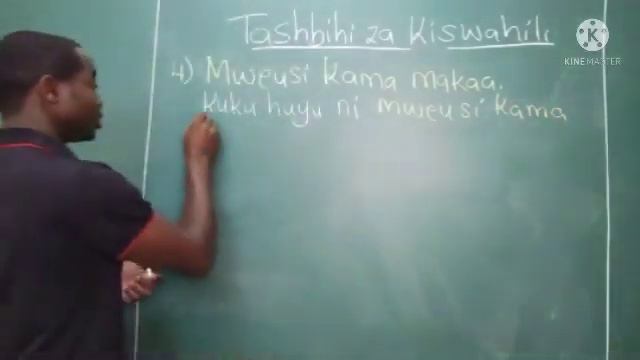 Tashbihi za Kiswahili
4) Mweusi kama makaa.
Kuku huyu ni mweusi kama
KINEMASTER